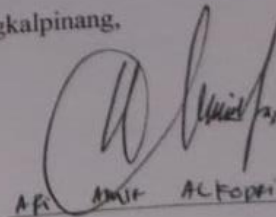 gkalpinang,
AFi AMIR ALKODRI